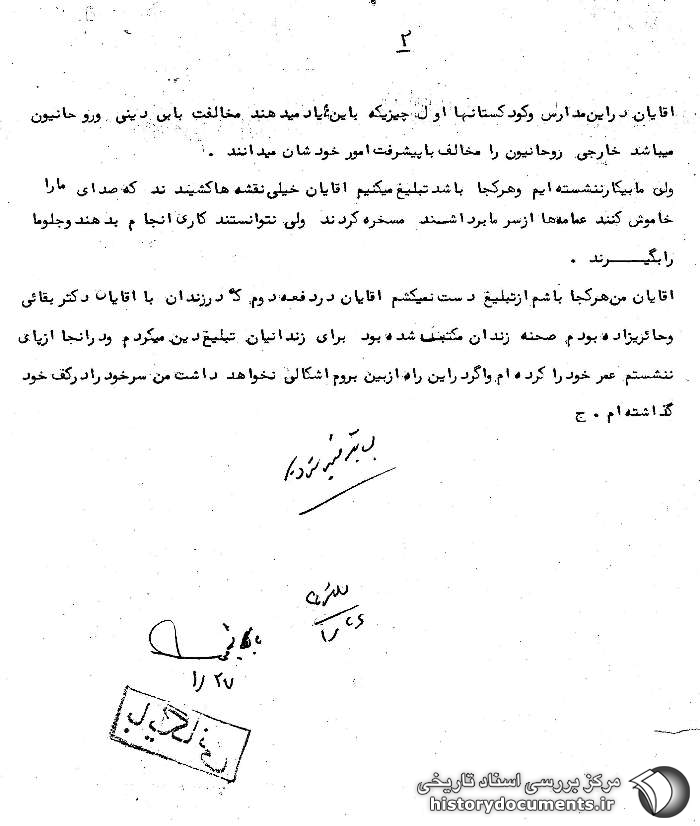 ۲
اقایان دراین مدارس وکودکستانها اول چیزیکه باین یاد میدهند مخالفت بابی دینی وروحانیون
میباشد خارجی روحانیون را مخالف باپیشرفت امور خودشان میدانند .
ولی مابیکارننشسته ایم وهرکجا باشد تبلیغ میکنیم اقایان خیلی نقشه هاکشیدند که صدای مارا
خاموش کنند عمامه‌ها ازسر مابرداشتند مسخره کردند ولی نتوانستند کاری انجام بدهند وجلوما
رابگیـــرند .
اقایان من هرکجا باشم ازتبلیغ دست نمیکشم اقایان دردفعه دوم که درزندان با اقایان دکتربقائی
وحائریزاده بودم صحنه زندان مکتب شده بود برای زندانیان تبلیغ دین میکردم ودرانجا ازپای
ننشستم عمر خودرا کرده ام واگردراین راه ازبین بروم اشکالی نخواهد داشت من سرخودرادرکف خود
گذاشته ام . ج
۱٫۲۶
بایگانی
۱٫۲۷
مرکز بررسی اسناد تاریخی
historydocuments.ir